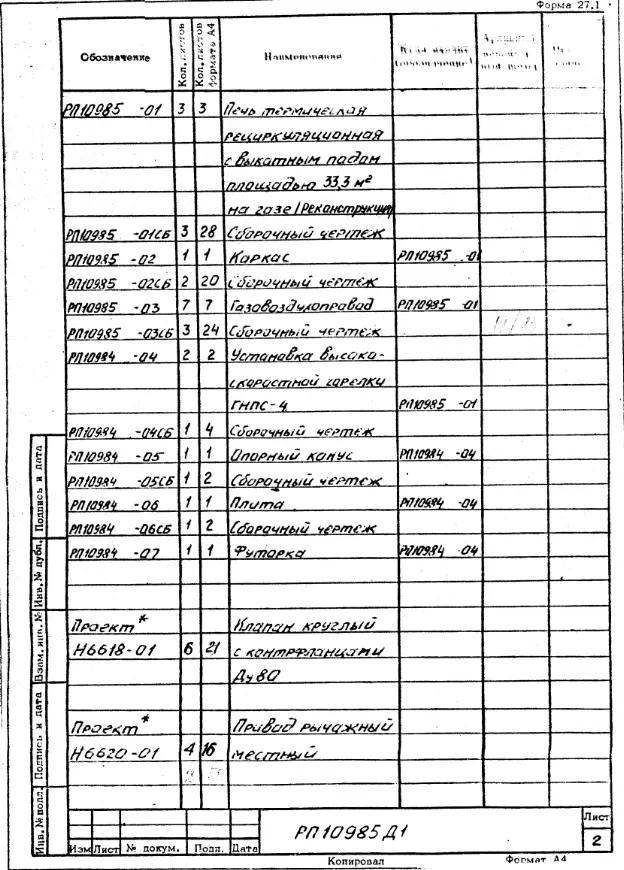 Форма 27.1
Обозначение Кол. листов Кол. листов формата А4 Наименование
РП10985 -01 3 3 Печь термическая
рециркуляционная
с выкатным подом
площадью 33,3 м²
на газе /Реконструкция/
РП10985 -01СБ 3 28 Сборочный чертеж
РП10985 -02 1 1 Каркас РП10985 -01
РП10985 -02СБ 2 20 Сборочный чертеж
РП10985 -03 7 7 Газовоздухопровод РП10985 -01
РП10985 -03СБ 3 24 Сборочный чертеж
РП10984 -04 2 2 Установка высоко-
скоростной горелки
ГНПС-4 РП10985 -01
РП10984 -04СБ 1 4 Сборочный чертеж
РП10984 -05 1 1 Опорный конус РП10984 -04
РП10984 -05СБ 1 2 Сборочный чертеж
РП10984 -06 1 1 Плита РП10984 -04
РП10984 -06СБ 1 2 Сборочный чертеж
РП10984 -07 1 1 Футорка РП10984 -04
Проект* Клапан круглый
Н6618-01 6 21 с контрфланцами
Ду 80
Проект* Привод рычажный
Н6620-01 4 16 местный
Инв.№ подл. Подпись и дата Взам. инв. № Инв. № дубл. Подпись и дата
Изм Лист № докум. Подп. Дата
РП10985Д1
Лист
2
Копировал Формат А4